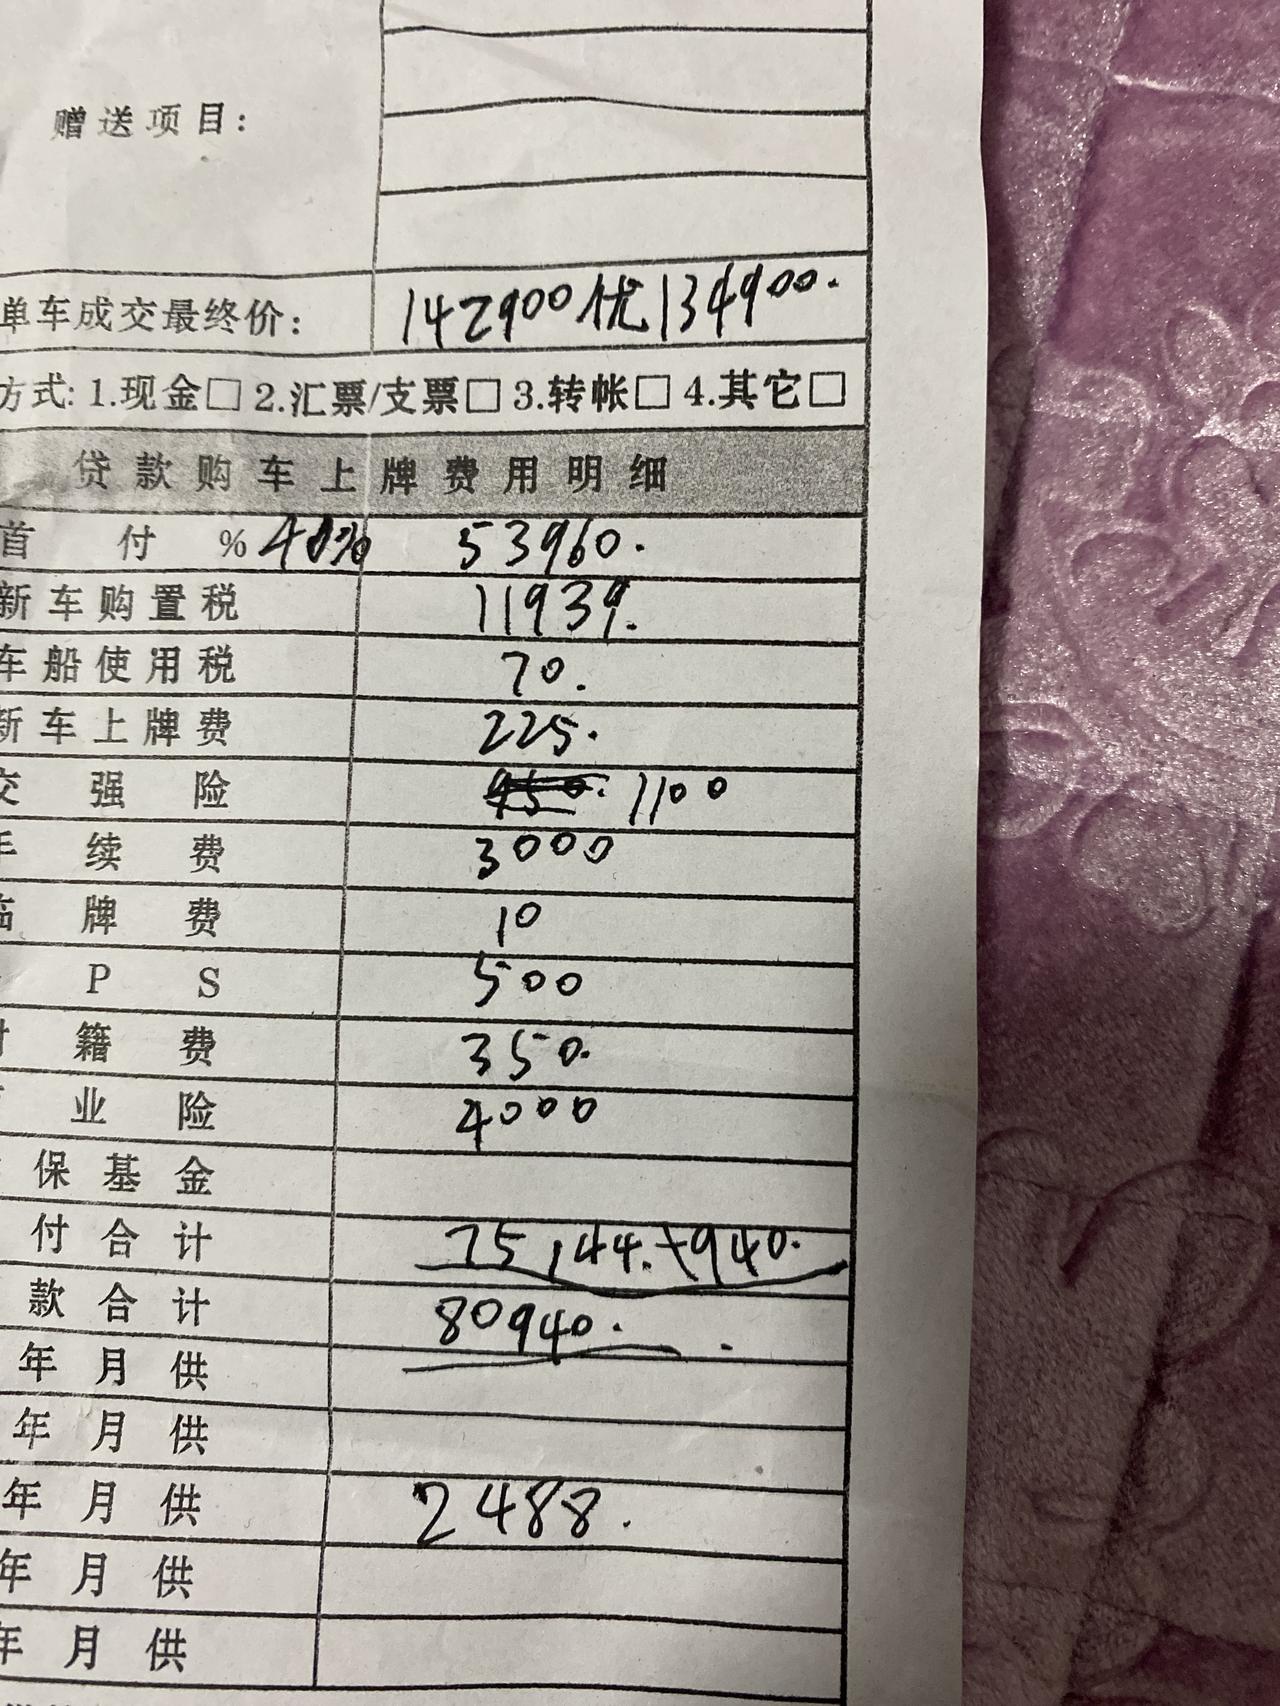 赠送项目:
单车成交最终价: 142900优134900.
方式: 1.现金□ 2.汇票/支票□ 3.转帐□ 4.其它□
贷款购车上牌费用明细
首付% 40% 53960.
新车购置税 11939.
车船使用税 70.
新车上牌费 225.
交强险 950. 1100
手续费 3000
临牌费 10
PS 500
籍费 350.
业险 4000
保基金
付合计 75144.+940.
款合计 80940.
年月供
年月供
年月供 2488.
年月供
年月供